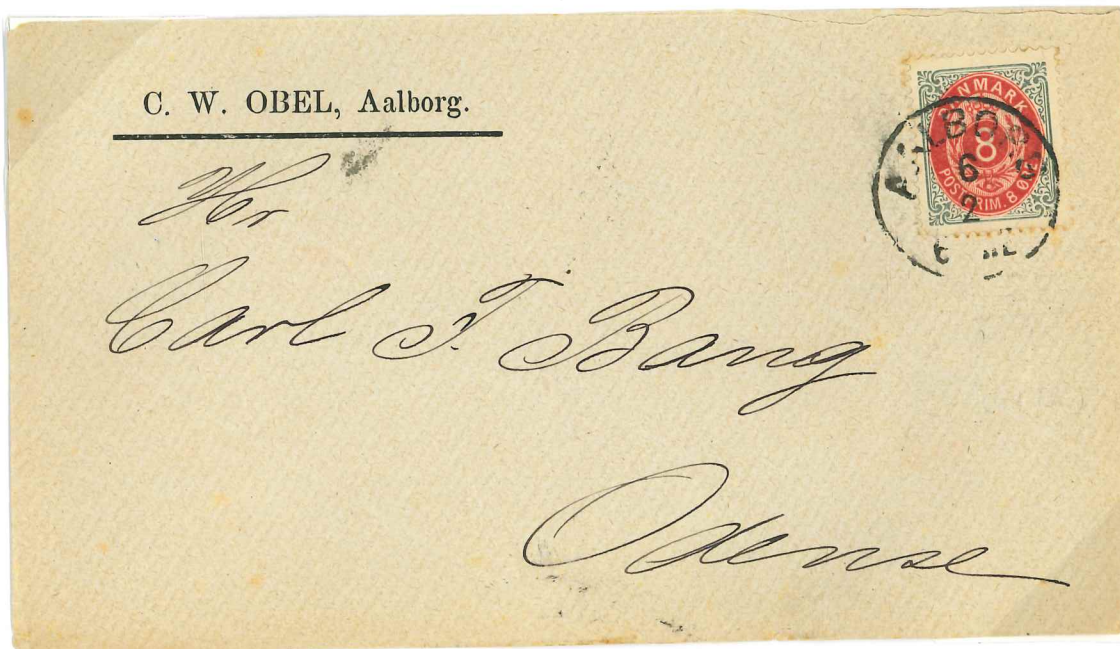 C. W. OBEL, Aalborg.
DANMARK
8
POSTFRIM. 8 ØRE
AALBORG
6
2
Hr
Carl F. Bang
Odense